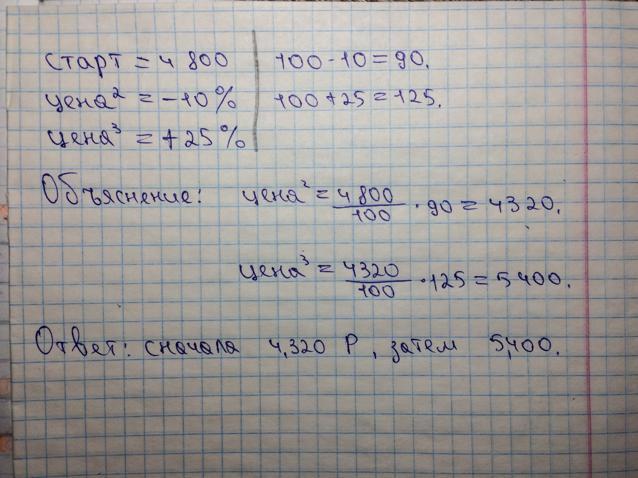 старт = 4 800 100 - 10 = 90.
цена² = -10% 100 + 25 = 125.
цена³ = +25%
Объяснение: цена² = 4 800 / 100 · 90 = 4320.
цена³ = 4320 / 100 · 125 = 5400.
Ответ: сначала 4,320 Р, затем 5,400.